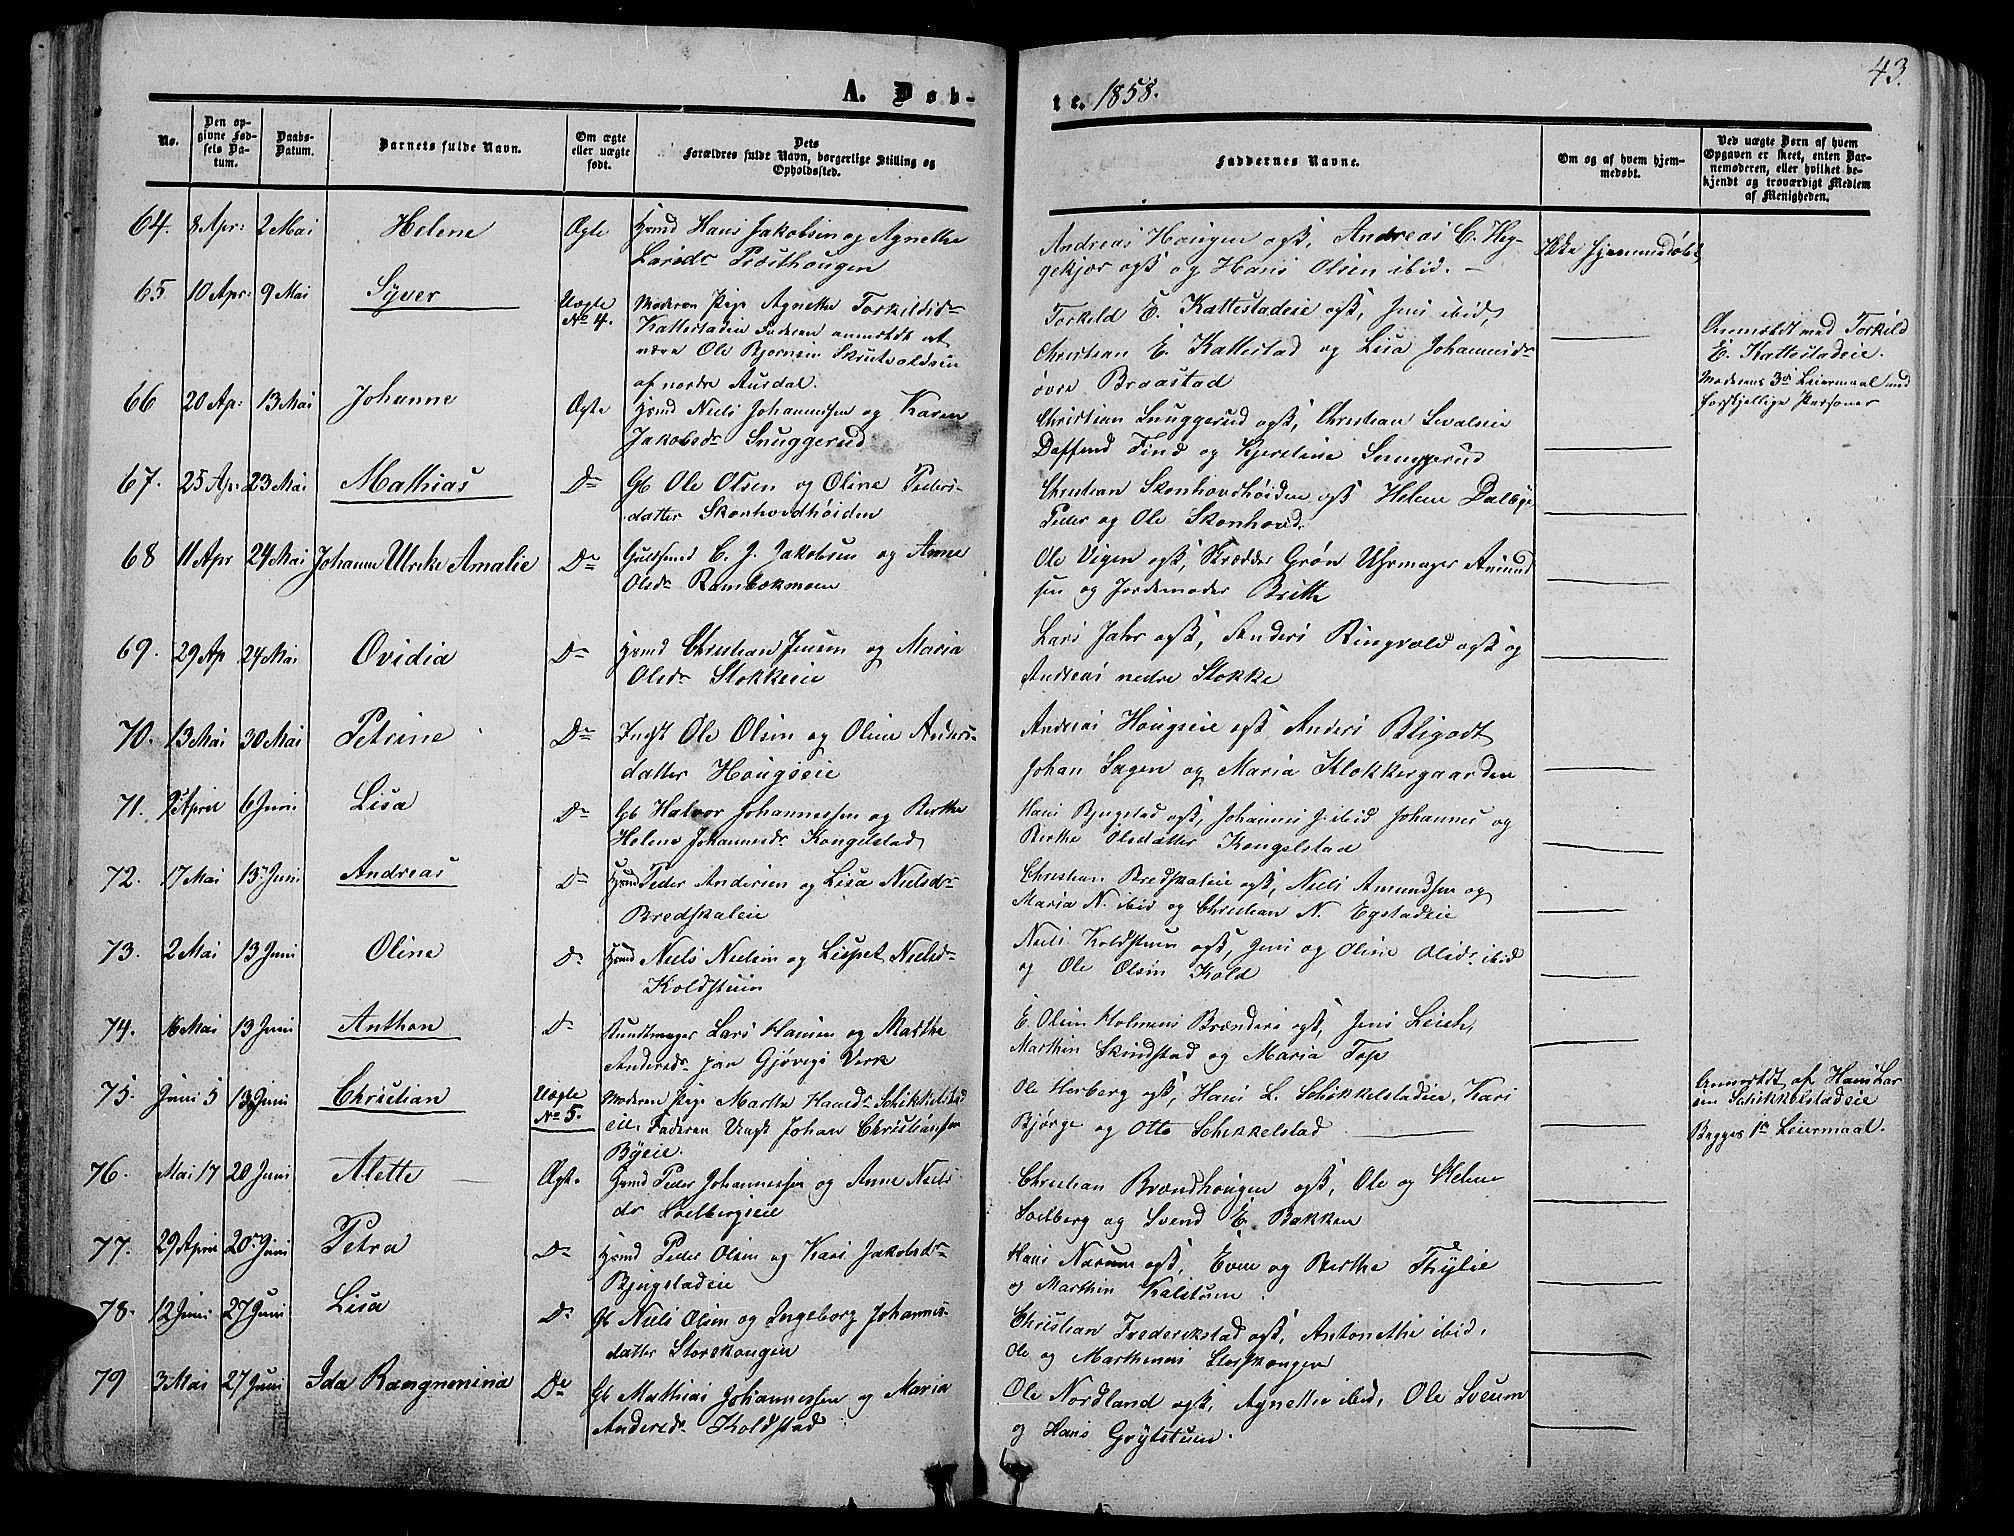 43.
A. Døb-
te. 1858.
No.
Den op-
givne Fød-
sels Da-
tum.
Daabs-
Datum.
Barnets fulde Navn.
Om ægte
eller uægte
født.
Dets
Forældres fulde Navn, borgerlige Stilling og
Opholdssted.
Faddernes Navne.
Om og af hvem hjem-
medøbt.
Ved uægte Børn af hvem
Opgaven er skeet, enten Bar-
nemoderen, eller hvilket be-
kjendt og troværdigt Medlem
af Menigheden.
64. 8 Apr: 2 Mai Helene Ægte Hmd Hans Jakobsen og Agnethe
Larsdr Prosthougen
Andreas Hougen ogsk, Andreas C. Heg-
gekjær ogsk og Hans Olsen ibid. –
Ikke hjemmedøbt
65. 10 Apr: 9 Mai Syver Uægte
No 4.
Moderen Pige Agnethe Torkildsdr
Kattestadeie Faderen anmeldt at
være Ole Bjørnsen Skrutvoldseie
af nordre Aurdal.
Torkild E. Kattestadeie ogsk, Jens ibid,
Christian E. Kattestad og Lisa Johannesdr
øvre Braastad
Anmeldt med Torkild
E. Kattestadeie.
Moderens 3die Leiermaal med
forskjellige Personer
66 20 Ap: 13 Mai Johanne Ægte Hmd Niels Johannesen og Karen
Jakobsdr Snuggerud
Christian Snuggerud ogsk, Christian Sevaleie
Deffend Find og Kjerstine Snuggerud
67. 25 Ap: 23 Mai Mathias Do Gb Ole Olsen og Oline Peders-
datter Skonhovdhøiden
Christian Skonhovdhøiden ogsk Helene Dalbye
Peder og Ole Skonhovd.
68 11 Apr 24 Mai Johanne Ulrike Amalie Do Guldsmd C. J. Jakobsen og Anne
Olsdr Rambekmoen
Ole Vigen ogsk, Skrædder Grøn Uhrmager Amund
sen og Jordemoder Brithe
69. 29 Ap 24 Mai Ovidia Do Hmd Christian Jensen og Maria
Olsdr Stokkeeie
Lars Jahr ogsk, Anders Ringvold ogsk og
Andreas nedre Stokke
70. 13 Mai 30 Mai Petrine Do Indst Ole Olsen og Oline Anders-
datter Hougseie
Andreas Hougseie ogsk Anders Bligodt
Johan Sagen og Maria Klokkergaarden
71. 9 April 6 Juni Lisa Do Gb Halvor Johannessen og Berthe
Helene Johannesdr Kongelstad
Hans Bjugstad ogsk, Johannes J. ibid Johannes og
Berthe Olsdatter Kongelstad
72. 17 Mai 13 Juni Andreas Do Hmd Peder Andersen og Lisa Nielsdr
Bredskaleie
Christian Bredskaleie ogsk, Niels Amundsen og
Maria N. ibid og Christian N. Egstadeie
73. 2 Mai 13 Juni Oline Do Hmd Niels Nielsen og Lispet Nielsdr
Koldstuen
Niels Koldstuen ogsk, Jens og Oline Olsdr ibid
og Ole Olsen Kold
74. 16 Mai 13 Juni Anthon Do Bundtmager Lars Hansen og Marthe
Andersdr paa Gjøvigs Værk
E. Olsen Holmens Brænderi ogsk, Jens Leich,
Marthin Skindstad og Maria Top
75. Juni 5 13 Juni Christian Uægte
No 5.
Moderen Pige Marthe Hansdr Schikkelstad
eie, Faderen Ungk Johan Christiansen
Byeie.
Ole Herberg ogsk, Hans L. Schikkelstadeie, Kari
Bjørge og Otto Schikkelstad
Anmeldt af Hans Lar
sen Schikkelstadeie
Begges 1ste Leiermaal.
76. Mai 17 20 Juni Alette Ægte Hmd Peder Johannessen og Anne Niels
dr Soelbergseie
Christian Brændhougen ogsk, Ole og Helene
Soelberg og Svend E. Bakken
77. 29 April 20 Juni Petra Do Hmd Peder Olsen og Kari Jakobsdr
Bjugstadeie
Hans Narum ogsk, Even og Berthe Thylie
og Marthin Kalstuen.
78. 12 Juni 27 Juni Lisa Do Gb Niels Olsen og Ingeborg Johannes-
datter Storskougen
Christian Frederikstad ogsk, Antonethe ibid,
Ole og Marthinus Storskougen
79 3 Mai 27 Juni Ida Rangnenina Do Gb Mathias Johannessen og Maria
Andersdr Koldstad
Ole Nordland ogsk, Agnethe ibid, Ole Sveum
og Hans Grytstuen.